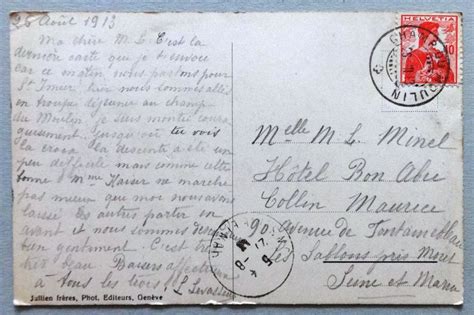 26 Août 1913
Ma chère M. L. C'est la
dernière carte que je t'envoie
car ce matin nous partons pour
St Imier, hier nous sommes allés
en troupe déjeuner au champ
du Moulin, je suis montée coura
geusement jusqu'où tu vois
la croix la descente a été un
peu difficile mais comme cette
bonne Mme Kaiser ne marche
pas mieux que moi nous avons
laissé les autres partir en
avant et nous sommes descendues
bien gentiment. C'est très
très beau. Baisers affectueux
à tous les trois! L Levasseur
Jullien frères, Phot. Editeurs, Genève
HELVETIA
10
MOULIN
Melle M. L. Minel
Hôtel Bon Abri
Collin Maurice
90 Avenue de Fontainebleau
Les Sablons près Moret
Seine et Marne